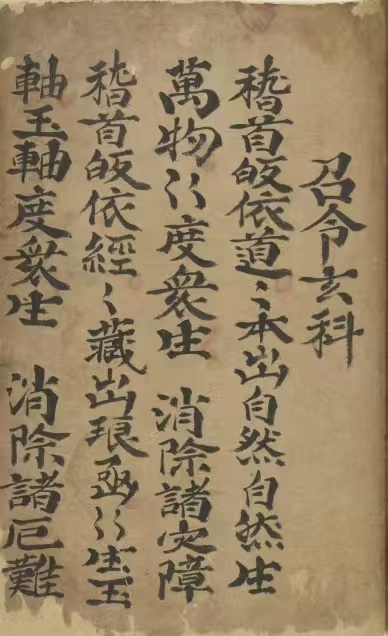 召令玄科
稽首皈依道〻本出自然自然生
萬物〻〻度衆生 消除諸灾障
稽首皈依經〻藏出琅函〻〻生玉
軸玉軸度衆生 消除諸厄難